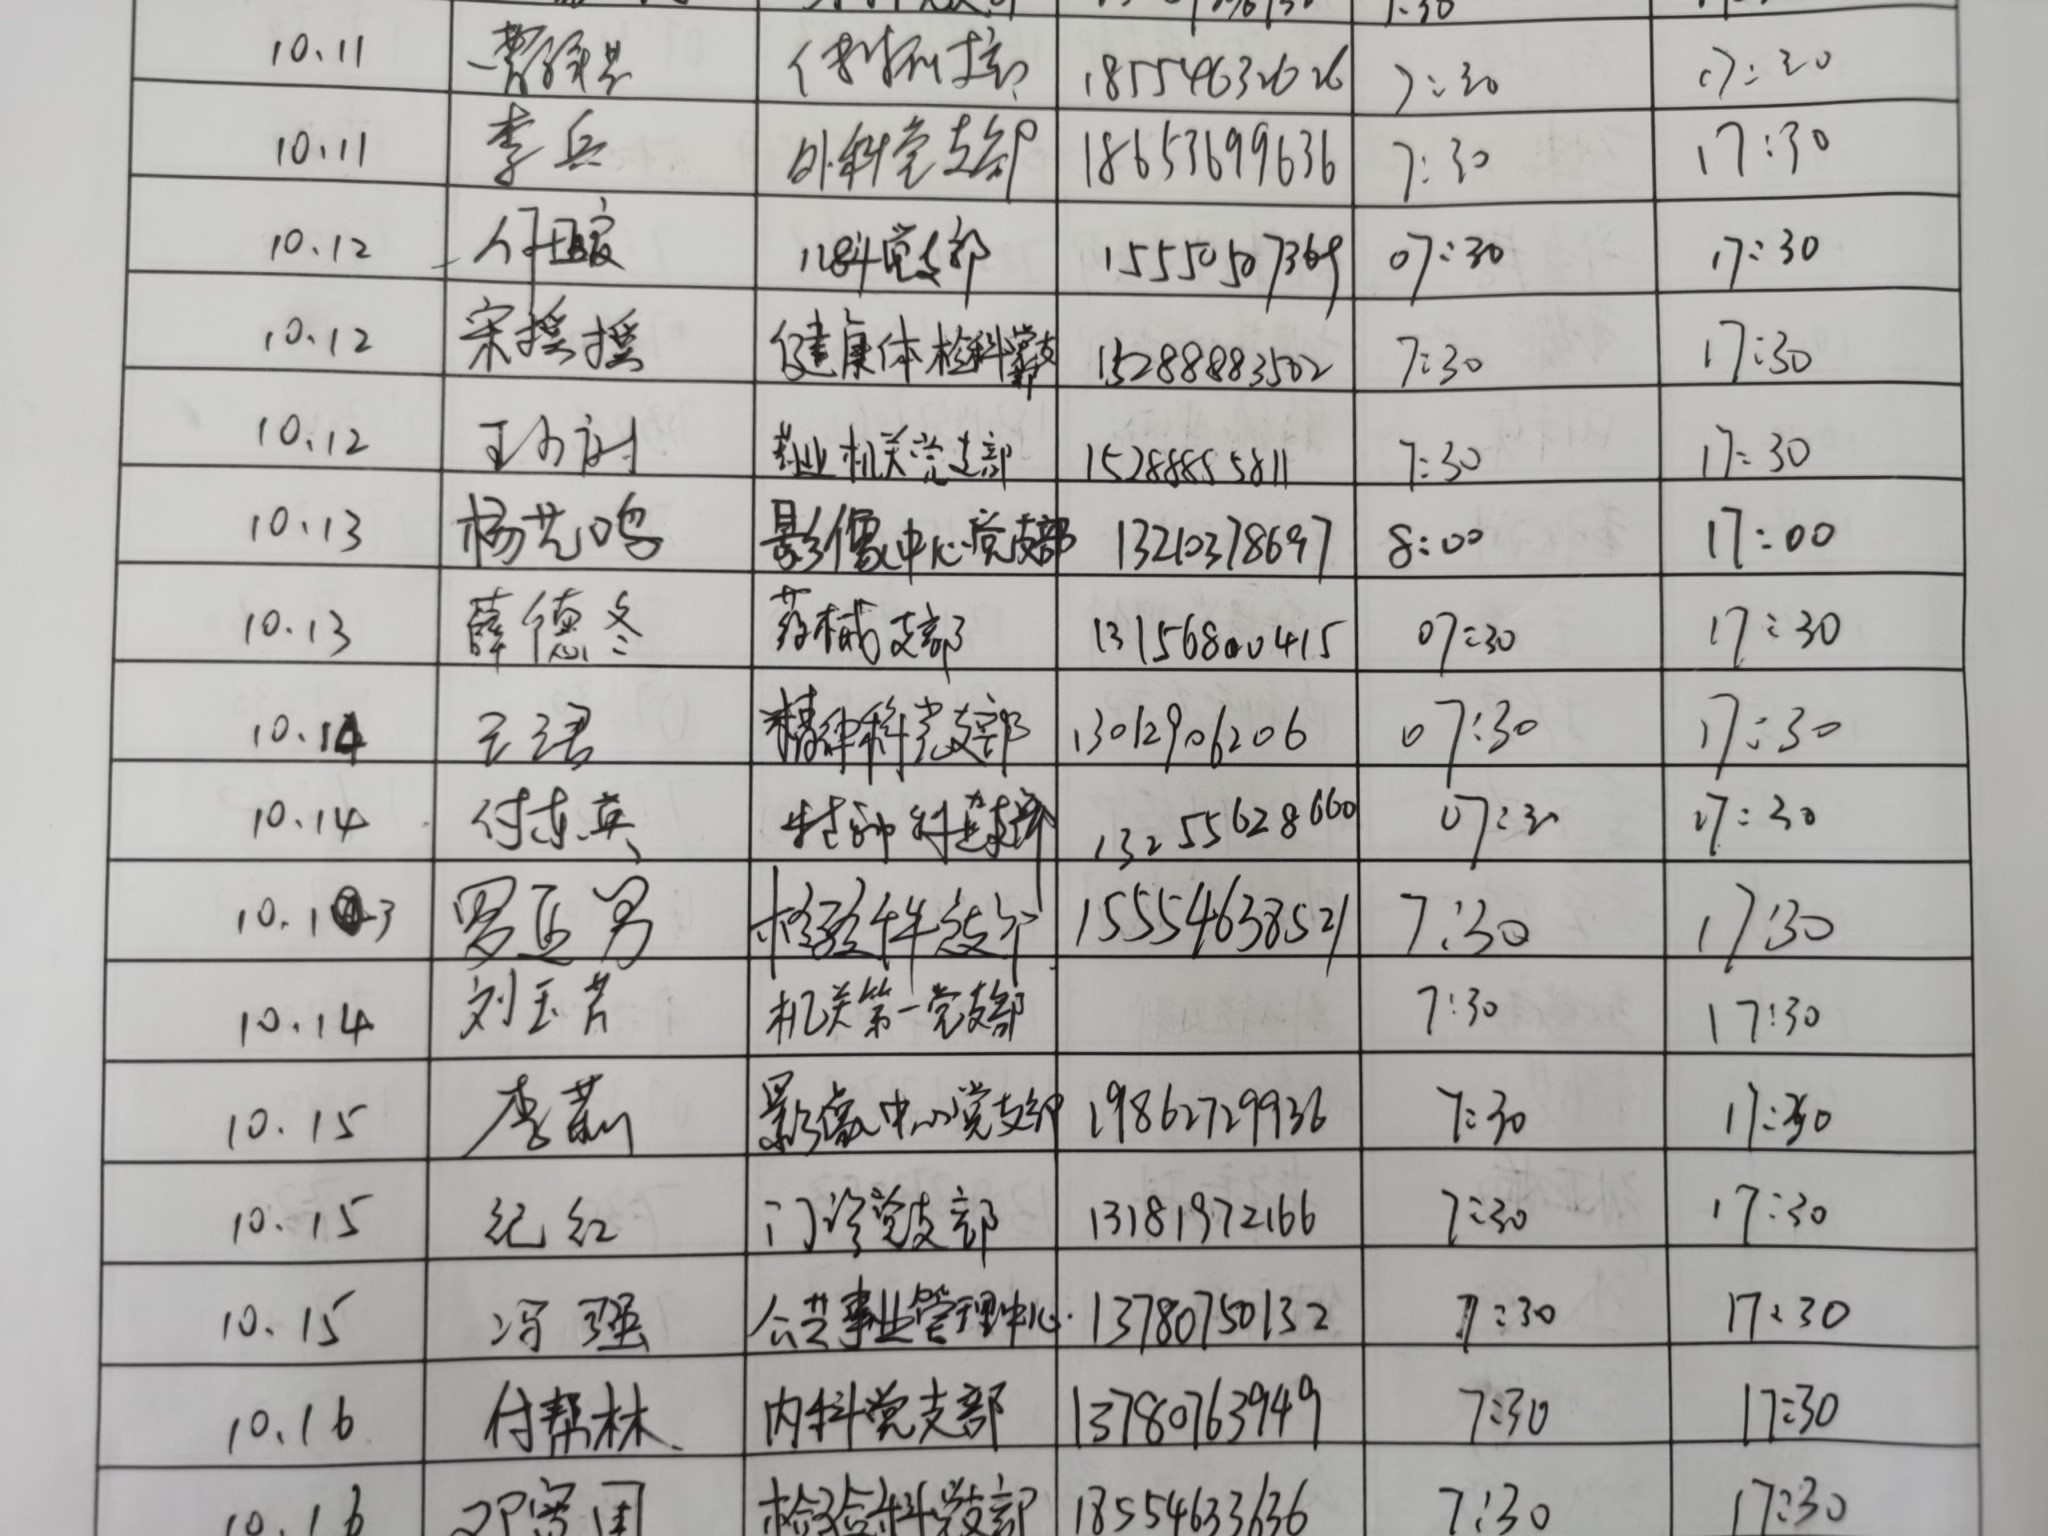 10.11 18554632626 7:30 17:30
10.11 李兵 外科党支部 18653699636 7:30 17:30
10.12 儿科党支部 15550507369 07:30 17:30
10.12 宋摇摇 健康体检科党支部 15288883502 7:30 17:30
10.12 药业机关党支部 15288885811 7:30 17:30
10.13 杨艺鸣 影像中心党支部 13210378697 8:00 17:00
10.13 薛德冬 药械支部 13156800415 07:30 17:30
10.14 王珺 精神科党支部 13012906206 07:30 17:30
10.14 付东英 精神科党支部 13255628660 07:30 17:30
10.13 罗亚男 检验科党支部 15554638521 7:30 17:30
10.14 刘玉芹 机关第一党支部 7:30 17:30
10.15 李莉 影像中心党支部 19862729936 7:30 17:30
10.15 纪红 门诊党支部 13181972166 7:30 17:30
10.15 冯强 公共事业管理中心 13780750132 7:30 17:30
10.16 付帮林 内科党支部 13780763949 7:30 17:30
10.16 检验科党支部 18554633636 7:30 17:30